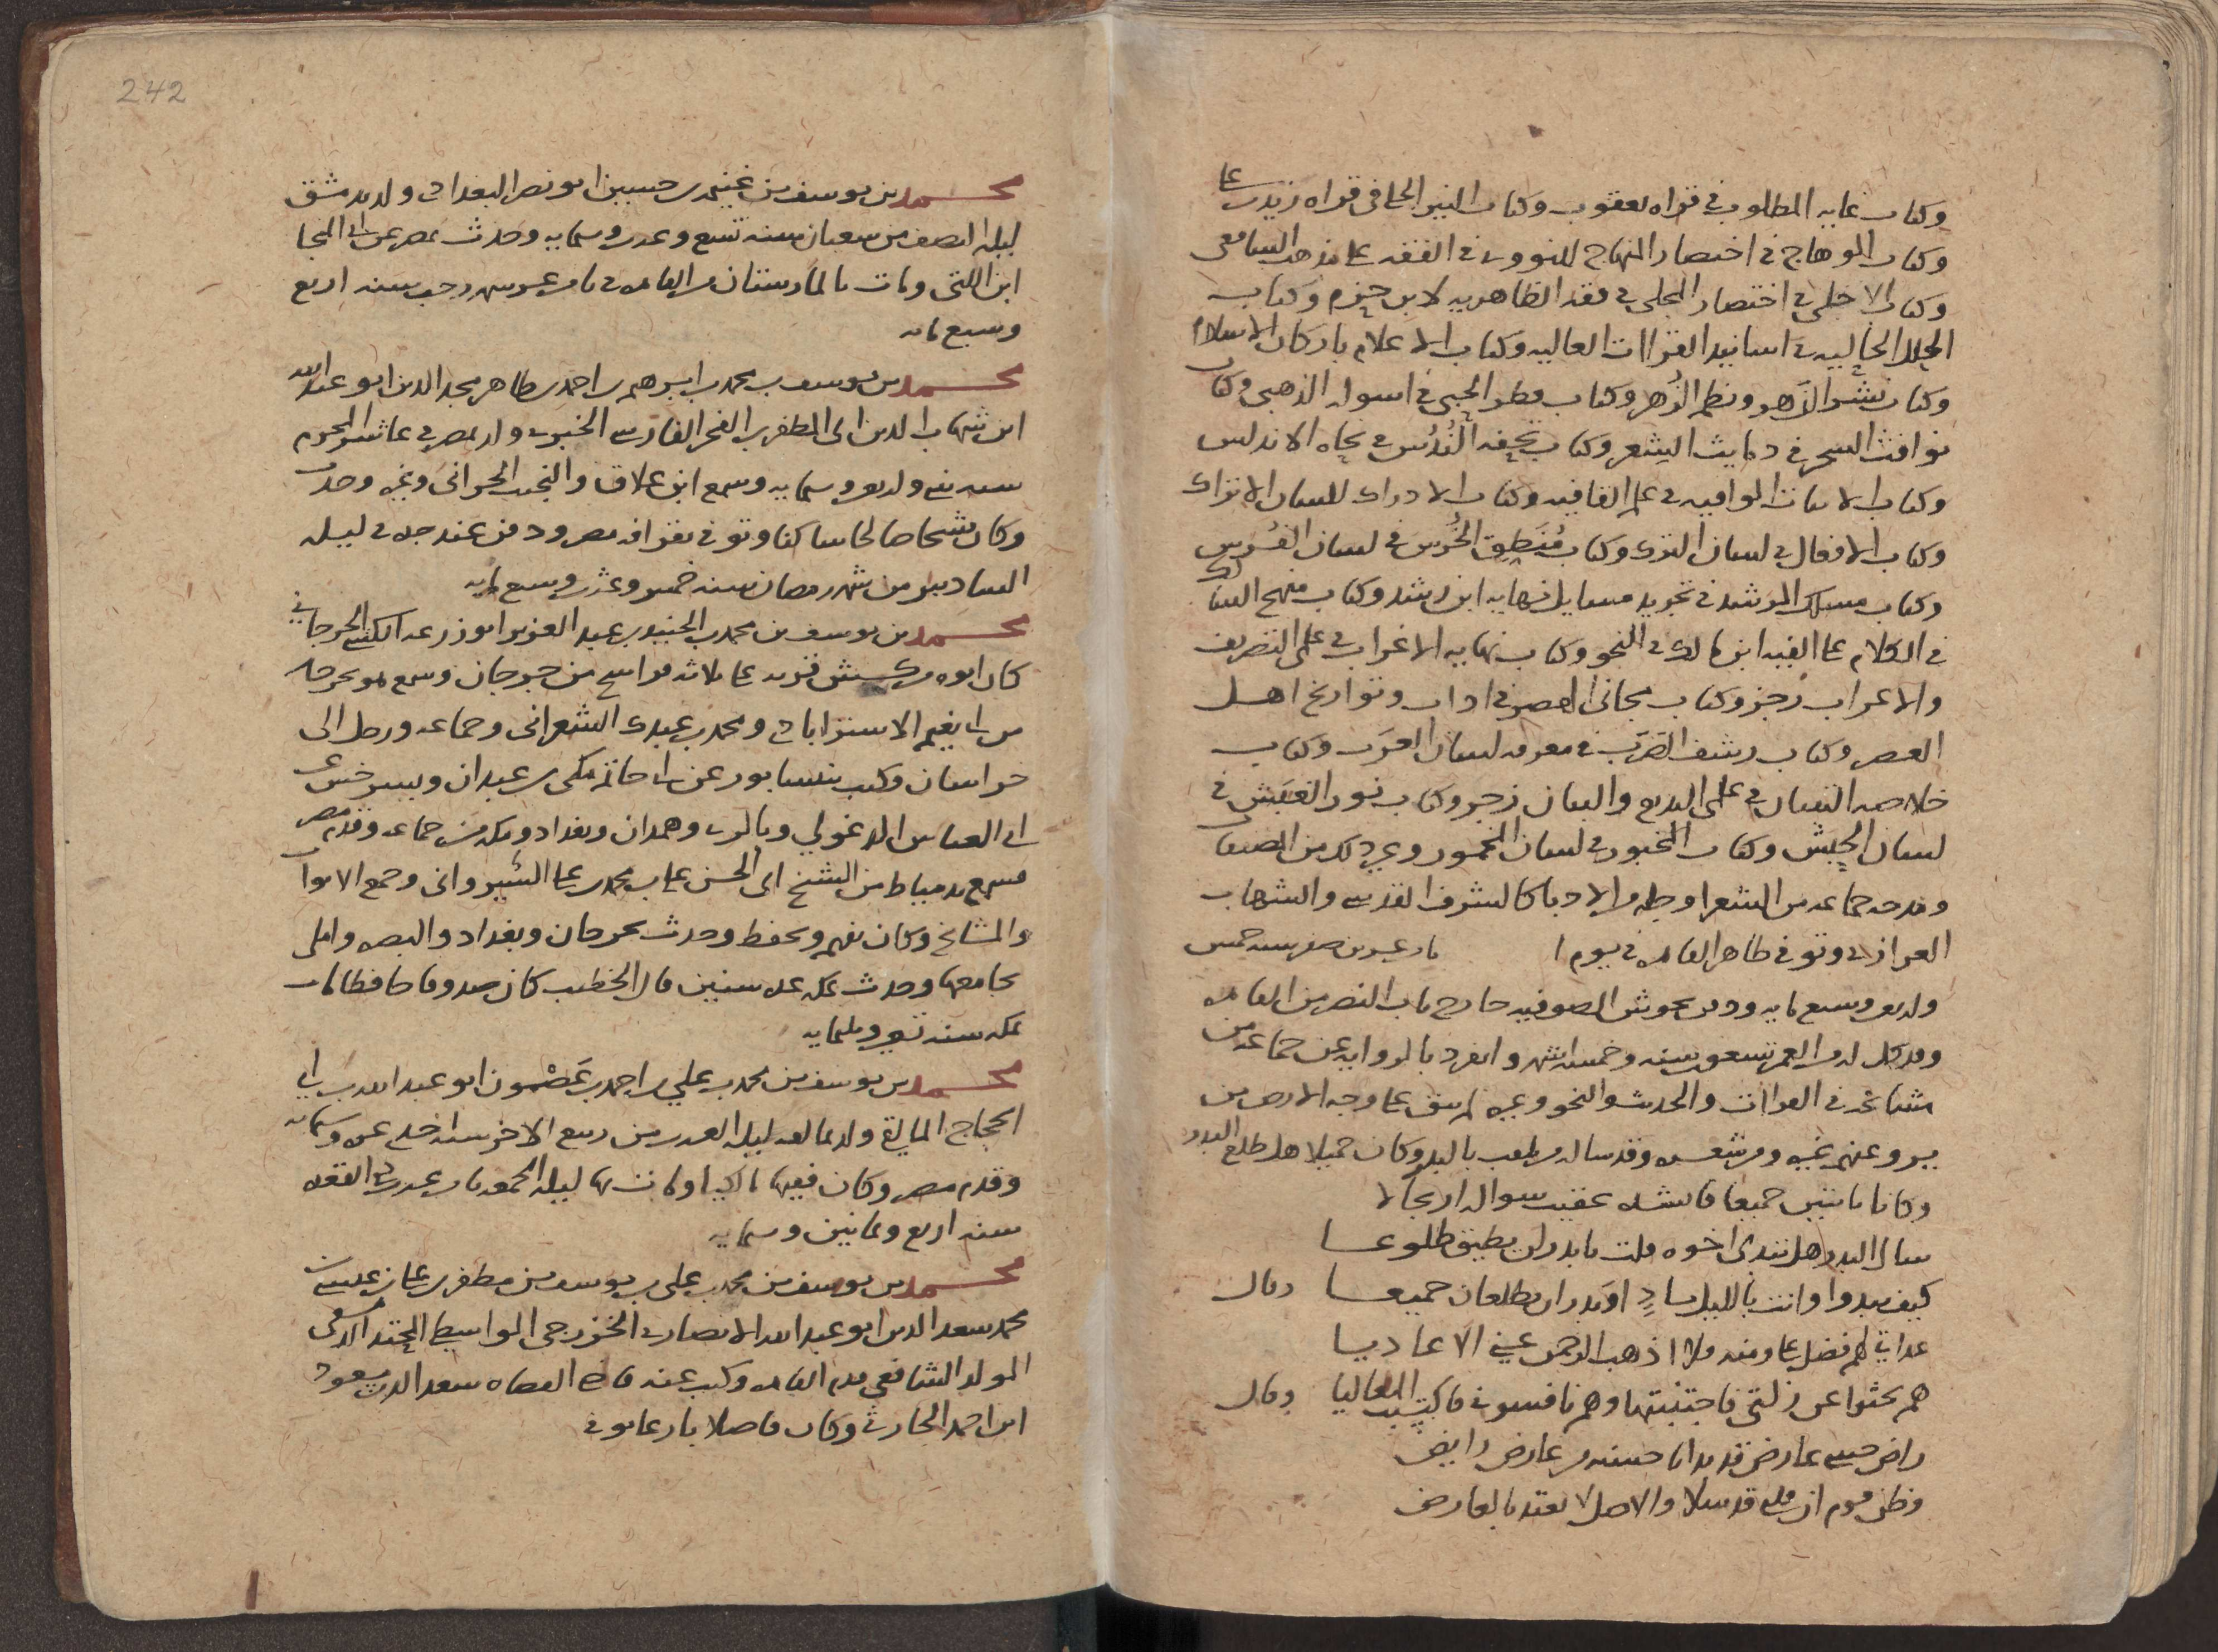 وكتاب غايه المطلوب في قراه يعقوب وكتاب النير الجلي في قراه زيد بن علي
وكتاب الوهاج في اختصار المنهاج للنووي في الفقه على مذهب الشافعي
وكتاب الاجلي في اختصار المحلي في فقه الظاهريه لابن حزم وكتاب
الحلل الحاليه في اسانيد القراات العاليه وكتاب الاعلام باركان الاسلام
وكتاب نثر الزهر ونظم الزهر وكتاب قطر الحبي في اسوله الذهبي وكتاب
نوافث السحر في دمايث الشعر وكتاب تحفه الندس في نحاه الاندلس
وكتاب الابيات الوافيه في علم القافيه وكتاب الادراك للسان الاتراك
وكتاب الافعال في لسان الترك وكتاب منطق الخرس في لسان الفرس
وكتاب مسلك المرشد في تجريد مسايل نهايه ابن رشد وكتاب منهج السالك
في الكلام على الفيه ابن مالك في النحو وكتاب نهايه الاغراب في علمي التصريف
والاعراب رجز وكتاب مجاني الهصر في اداب وتواريخ اهل
العصر وكتاب رشف الضرب في معرفه لسان العرب وكتاب
خلاصه التبيان في علمي البديع والبيان رجز وكتاب نور الغبش في
لسان الحبش وكتاب المخبور في لسان اليخمور وغير ذلك من المصنفات
ومدحه جماعه من الشعرا وجله الادبا كالشرف القدسي والشهاب
العزازي وتوفي ظاهر القاهره في يوم ا ثامن عشرين صفر سنه خمس
واربعين وسبع مايه ودفن بحوش الصوفيه خارج باب النصر من القاهره
وقد كمل له من العمر تسعون سنه وخمسه اشهر وانفرد بالروايه عن جماعه من
مشايخه في القراات والحديث والنحو وغيره لم يبق على وجه الارض من
يروي عنهم غيره ومن شعره وقد ساله من يلقب بالبدر وكان جميلا هل طلع البدر
وكانا ماشيين جميعا فانشده عقيب سواله ارتجالا
سال البدر هل تبدى اخوه قلت يا بدر لن يطيق طلوعا
كيف يبدوا وانت بالليل باد اوبدران يطلعان جميعا وقال
عداتي لهم فضل علي ومنه فلا اذهب الرحمن عني الاعاديا
هم بحثوا عن زلتي فاجتنبتها وهم نافسوني فاكتسبت المعاليا وقال
راض حبيبي عارض قد بدا يا حسنه من عارض رايض
وظن قوم ان قلبي قد سلا والاصل لا يعتد بالعارض
242
محمد بن يوسف بن غنيمه بن حسين ابو نصر البغدادي ولد بدمشق
ليله النصف من شعبان سنه تسع وعشرين وستمايه وحدث بمصر عن ابي المنجا
ابن اللتي ومات بالمارستان من القاهره في ثامن عشر شهر رجب سنه اربع
وسبع مايه
محمد بن يوسف بن محمد بن ابرهيم بن احمد بن طاهر مجد الدين ابو عبد الله
ابن شهاب الدين ابي المظفر بن الفخر الفارسي الخبري ولد بمصر في عاشر المحرم
سنه واربعين وستمايه وسمع ابن علاق والنجيب الحراني وغيره وحدث
وكان شيخا صالحا ساكنا وتوفي بقرافه مصر ودفن عند جده في ليله
السادس من شهر رمضان سنه خمس وعشرين وسبع مايه
محمد بن يوسف بن محمد بن الجنيد بن عبد العزيز ابو زرعه الكشي الجرجاني
كان ابوه من كش قريه على ثلاثه فراسخ من جرجان وسمع هو بجرجان
من ابي نعيم الاستراباذي ومحمد بن عبدك الشعراني وجماعه ورحل الى
خراسان وكتب بنيسابور عن ابي حاتم مكي بن عبدان وبسرخس عن
ابي العباس الدغولي وبالري وهمدان وبغداد ومكه من جماعه وقدم مصر
فسمع بدمياط من الشيخ ابي الحسن علي بن محمد بن علي الشيرواني وجمع الابواب
والمشايخ وكان يفهم ويحفظ وحدث بجرجان وبغداد والبصره واملى
بجامعها وحدث بمكه عده سنين قال الخطيب كان صدوقا حافظا مات
بمكه سنه تسعين وثلثمايه
محمد بن يوسف بن محمد بن علي بن احمد بن غصمون ابو عبد الله بن ابي
الحجاج المالقي ولد بمالقه ليله العشرين من ربيع الاخر سنه احدى عشره وستمايه
وقدم مصر وكان فقيها مالكيا ومات بها ليله الجمعه ثاني عشر ذي القعده
سنه اربع وثمانين وستمايه
محمد بن يوسف بن محمد بن علي بن يوسف بن مظفر بن علي بن عيسى بن
محمد سعد الدين ابو عبد الله الانصاري الخزرجي الواسطي المحتد الدمشقي
المولد الشافعي قدم القاهره وكتب عنه قاضي القضاه سعد الدين مسعود
ابن احمد الحارثي وكان فاضلا بارعا توفي